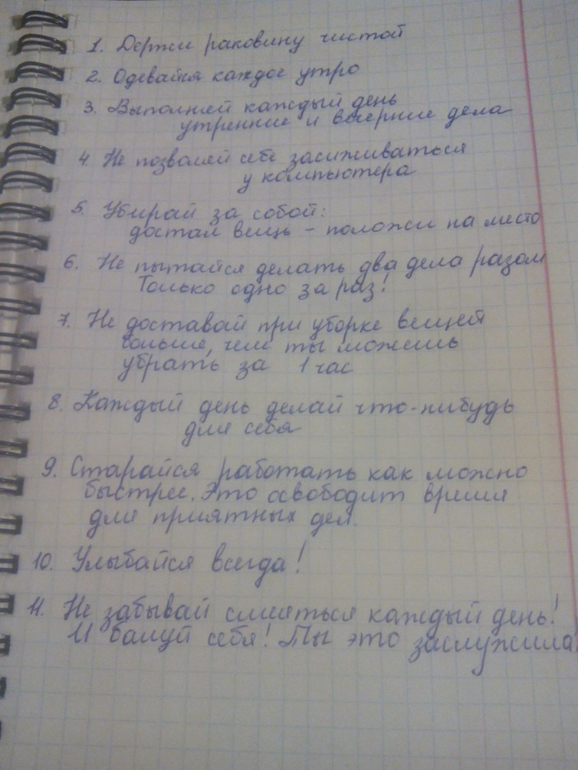 1. Держи раковину чистой
2. Одевайся каждое утро
3. Выполняй каждый день
утренние и вечерние дела
4. Не позволяй себе засиживаться
у компьютера
5. Убирай за собой:
достал вещь – положи на место
6. Не пытайся делать два дела разом
Только одно за раз!
7. Не доставай при уборке вещей
больше, чем ты можешь
убрать за 1 час
8. Каждый день делай что-нибудь
для себя
9. Старайся работать как можно
быстрее. Это освободит время
для приятных дел.
10. Улыбайся всегда!
11. Не забывай смеяться каждый день!
И балуй себя! Ты это заслужила!